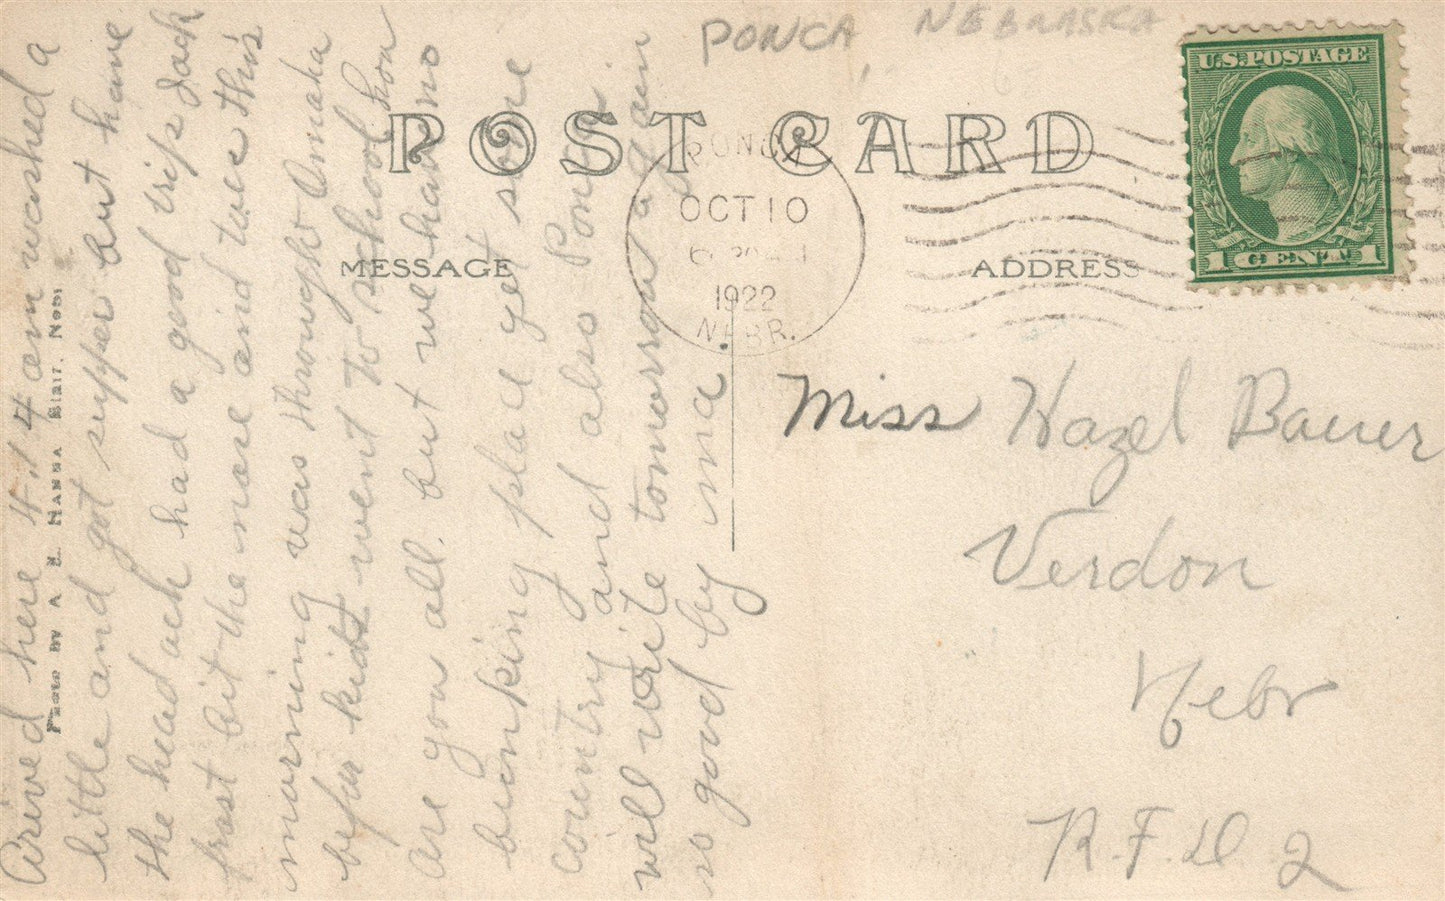 PONCA NEBRASKA
POST CARD
U.S. POSTAGE
1 CENT 1
PONCA
OCT 10
1922
NEBR.
MESSAGE
ADDRESS
Miss Hazel Bauer
Verdon
Nebr
R.F.D 2
Arived here 4.14 am washed a
little and got supper but have
the head ach had a good trip Jack
frast bit the nose and toes this
morning was throught Omaha
befor kids went to school how
are you all. but we hat no
bunking place yet some
country and also Ponca
will write tomorrow again
so good by ma
Photo by A E Hanna Blair, Neb